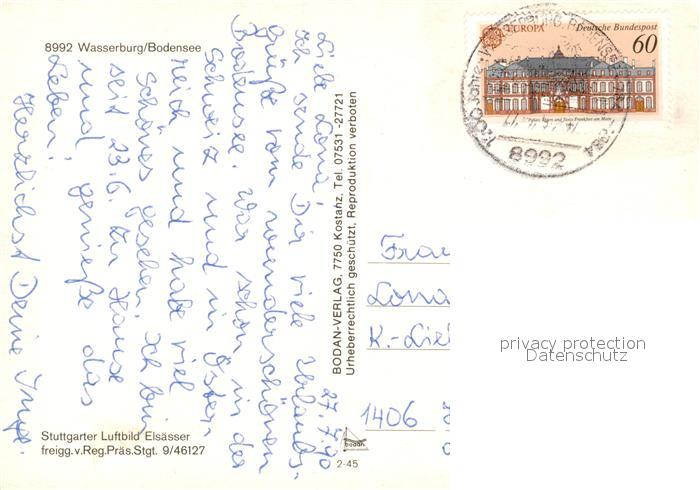 8992 Wasserburg/Bodensee
27.7.90
Liebe Lona,
ich sende Dir viele Urlaubs-
grüße vom wunderschönen
Bodensee. War schon in der
Schweiz und in Öster-
reich und habe viel
Schönes gesehen. Ich bin
seit 23.6. zu Hause
und genieße das
Leben.
Herzlichst Deine Inge.
Stuttgarter Luftbild Elsässer
freigg.v.Reg.Präs.Stgt. 9/46127
BODAN-VERLAG, 7750 Kostanz, Tel. 07531 -27721
Urheberrechtlich geschützt, Reproduktion verboten
bodan
2-45
EUROPA Deutsche Bundespost
60
Palais Thurn und Taxis Frankfurt am Main
1200 Jahre WASSERBURG BODENSEE 1984
8992
Frau
Lona
K.-Lieb
1406
privacy protection
Datenschutz